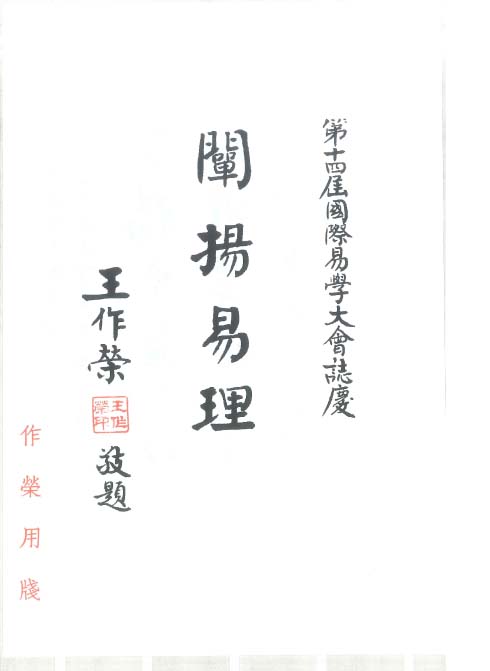 第十四届國際易學大會誌慶
闡揚易理
王作榮
王作榮印
敬題
作榮用牋